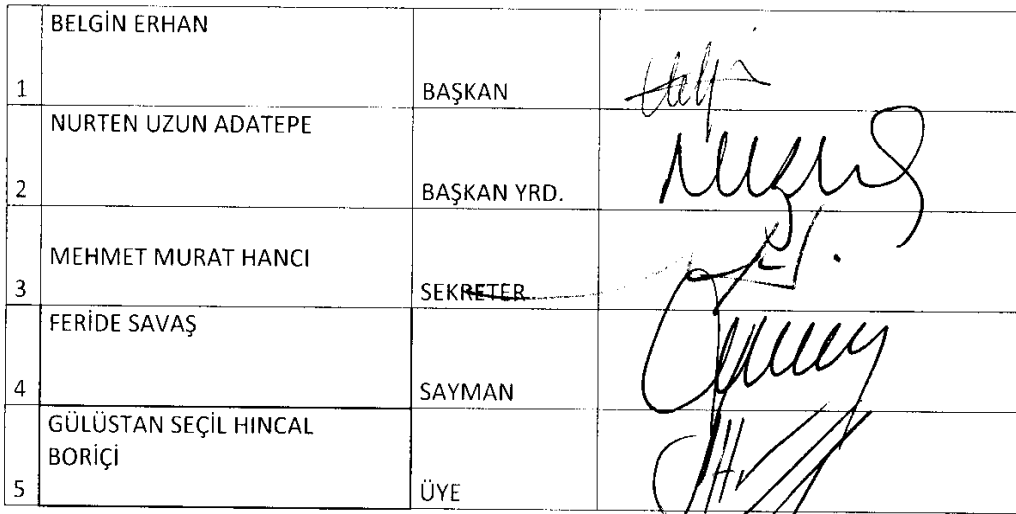 BELGİN ERHAN
1 BAŞKAN
NURTEN UZUN ADATEPE
2 BAŞKAN YRD.
MEHMET MURAT HANCI
3 SEKRETER
FERİDE SAVAŞ
4 SAYMAN
GÜLÜSTAN SEÇİL HINCAL
BORİÇİ
5 ÜYE